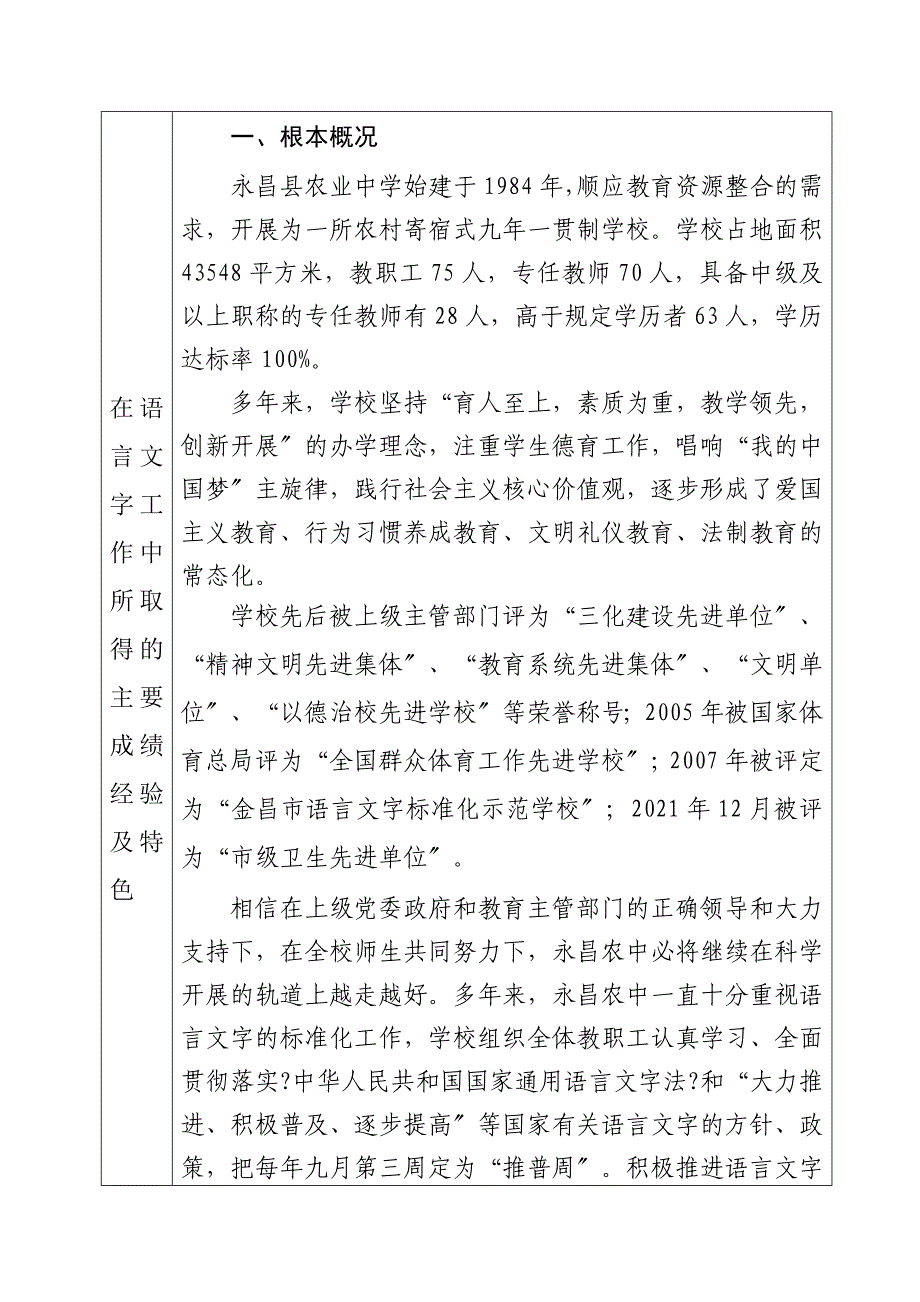 在语
言文
字工
作中
所取
得的
主要
成绩
经验
及特
色
一、根本概况
永昌县农业中学始建于1984年，顺应教育资源整合的需
求，开展为一所农村寄宿式九年一贯制学校。学校占地面积
43548平方米，教职工75人，专任教师70人，具备中级及
以上职称的专任教师有28人，高于规定学历者63人，学历
达标率100%。
多年来，学校坚持“育人至上，素质为重，教学领先，
创新开展〞的办学理念，注重学生德育工作，唱响“我的中
国梦〞主旋律，践行社会主义核心价值观，逐步形成了爱国
主义教育、行为习惯养成教育、文明礼仪教育、法制教育的
常态化。
学校先后被上级主管部门评为“三化建设先进单位〞、
“精神文明先进集体〞、“教育系统先进集体〞、“文明单
位〞、“以德治校先进学校〞等荣誉称号；2005年被国家体
育总局评为“全国群众体育工作先进学校〞；2007年被评定
为“金昌市语言文字标准化示范学校〞；2021年12月被评
为“市级卫生先进单位〞。
相信在上级党委政府和教育主管部门的正确领导和大力
支持下，在全校师生共同努力下，永昌农中必将继续在科学
开展的轨道上越走越好。多年来，永昌农中一直十分重视语
言文字的标准化工作，学校组织全体教职工认真学习、全面
贯彻落实?中华人民共和国国家通用语言文字法?和“大力推
进、积极普及、逐步提高〞等国家有关语言文字的方针、政
策，把每年九月第三周定为“推普周〞。积极推进语言文字